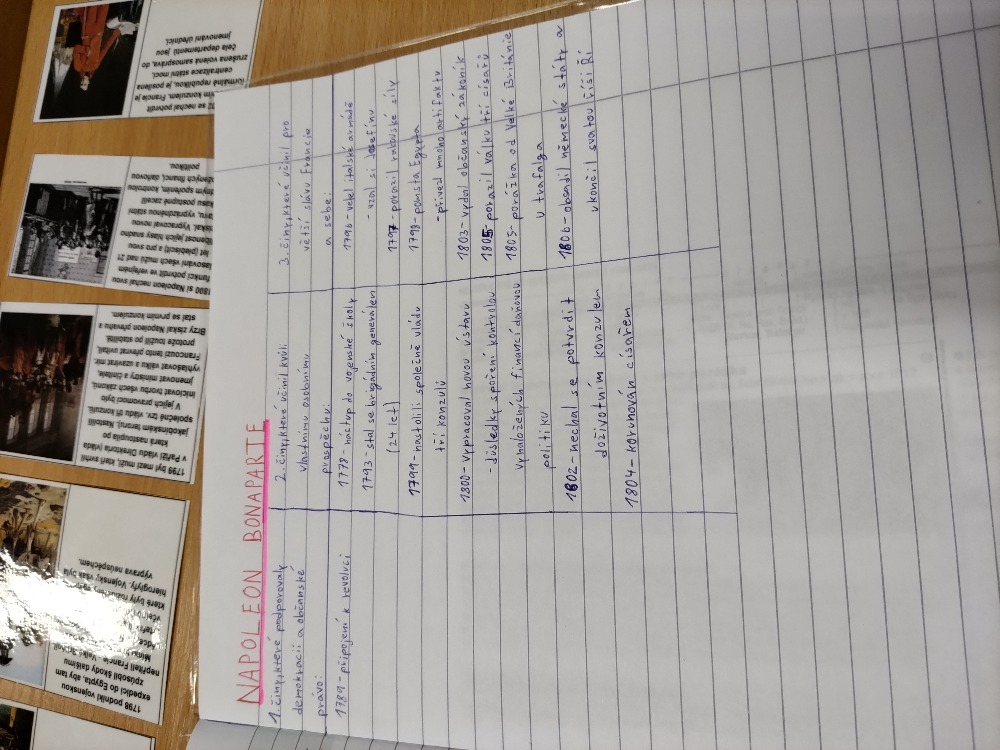 NAPOLEON BONAPARTE
1. činy, které podporovaly
demokracii a občanské
právo:
1789 - připojení k revoluci
2. činy, které učinil kvůli
vlastnímu osobnímu
prospěchu:
1778 - nástup do vojenské školy
1793 - stal se brigádním generálem
(24 let)
1799 - nastolili společně vládu
tří konzulů
1800 - vypracoval novou ústavu
- důsledky spoření kontrolou
vynaložených financí daňovou
politiku
1802 - nechal se potvrdit
doživotním konzulem
1804 - korunován císařem
3. činy, které učinil pro
větší slávu Francie
a sebe:
1796 - velel italské armádě
- vzal si Josefínu
1797 - porazil rakouské síly
1798 - pomsta Egypta
- přivezl mnoho artifaktů
1803 - vydal občanský zákoník
1805 - porazil válku tří císařů
1805 - porážka od Velké Británie
u trafalga
1806 - obsadil německé státy a
ukončil svatou říši Ří
1798 podnikl vojenskou
expedici do Egypta, aby tam
způsobil škody dalšímu
nepříteli Francie
hieroglyfy. Vojensky však byla
výprava neúspěchem.
1799 mezi muži, kteří svrhli
v Paříži vládu Direktoria (vláda)
která nastoupila po
jakobínském teroru). Nastolili
společně tzv. vládu tří konzulů.
V jejich pravomoci bylo
iniciovat tvorbu všech zákonů,
jmenovat ministry a činitele,
vyhlašovat válku a uzavírat mír.
Francouzi tento převrat uvítali,
protože toužili po stabilitě.
Brzy získal Napoleon převahu a
stal se prvním konzulem.
1800 si Napoleon nechal svou
funkci potvrdit ve veřejném
hlasování všech mužů nad 21
let (plebiscit) a pro svou
jejich hlasy snadno
získal. Vypracoval novou
vyprázdněnou státní
kasu postupně zacelil
spořením, kontrolou
financí, daňovou
politikou.
02 se nechal potvrdit
konzulem. Francie je
formálně republikou, je posílena
centralizace státní moci,
zrušena volená samospráva, do
čela departementů jsou
jmenováni úředníci.